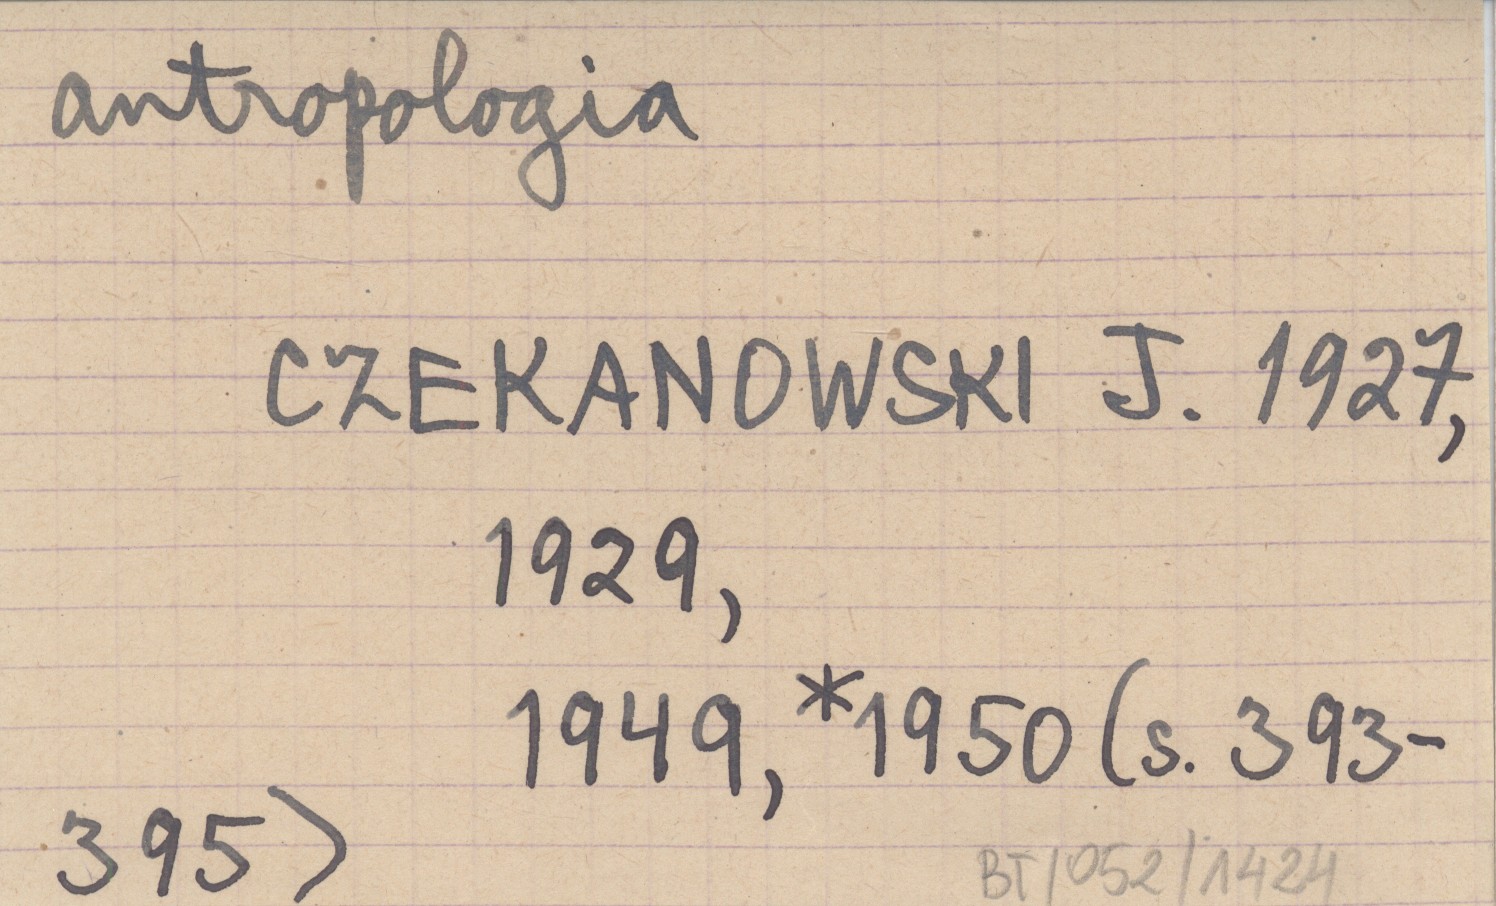 antropologia
CZEKANOWSKI J. 1927,
1929,
1949, *1950 (s. 393-
395)
BT/052/1424